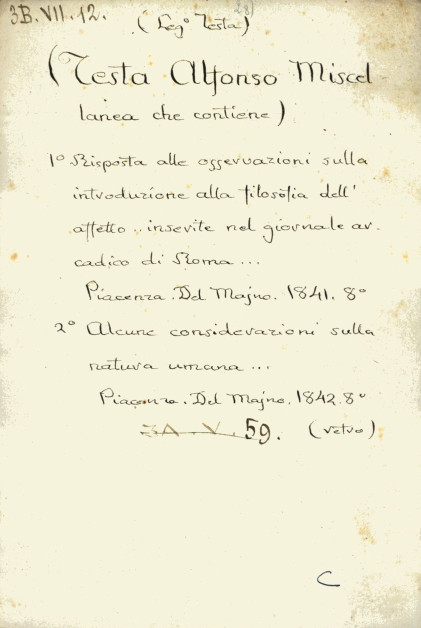 3B.VII.12.
(Leg.º Testa)
(Testa Alfonso Miscel
lanea che contiene)
1º Risposta alle osservazioni sulla
introduzione alla filosofia dell'
affetto .. inserite nel giornale ar.
cadico di Roma ...
Piacenza. Del Majno. 1841. 8º
2º Alcune considerazioni sulla
natura umana ...
Piacenza. Del Majno. 1842. 8º
3A.V. 59. (retro)
C